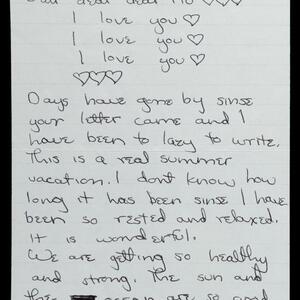 dear dear
I love you♡
I love you♡
I love you♡
♡♡♡
Days have gone by sinse
your letter came and I
have been to lazy to write.
This is a real summer
vacation. I dont know how
long it has been sinse I have
been so rested and relaxed.
It is wonderful.
We are getting so healthy
and strong. The sun and
are so good